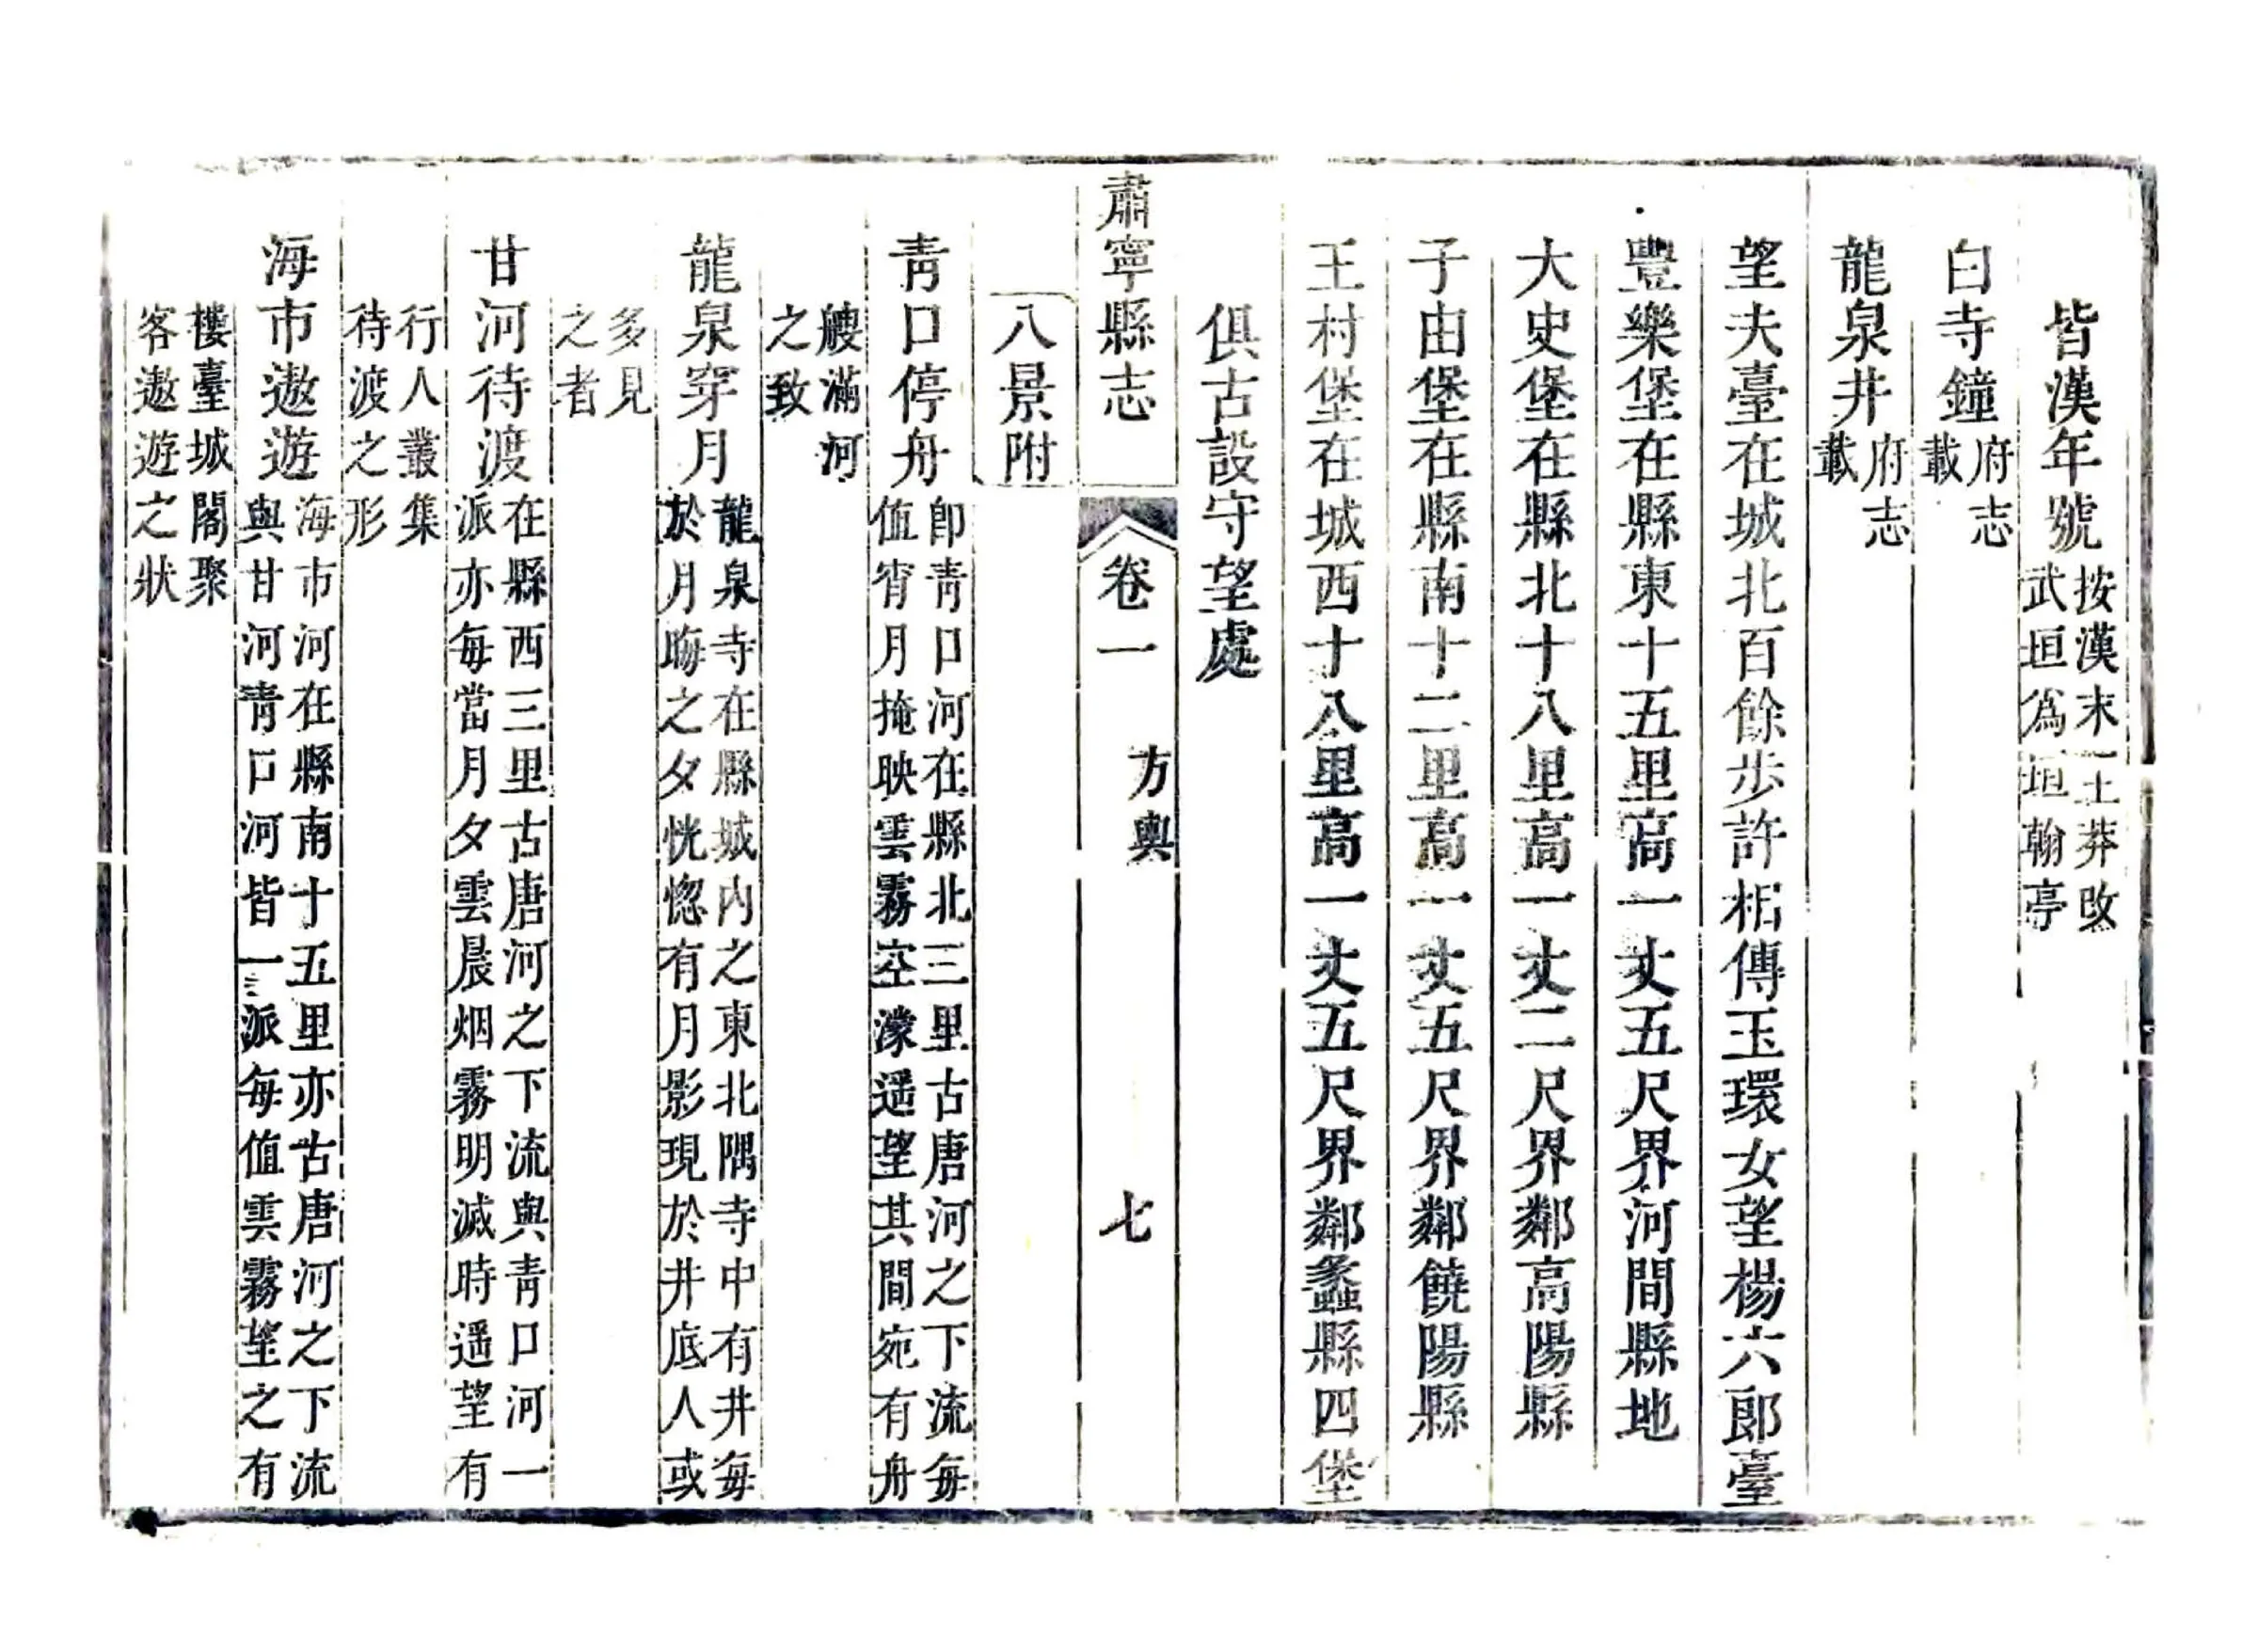 皆漢年號按漢末王莽改武垣爲垣翰亭
白寺鐘府志載
龍泉井府志載
望夫臺在城北百餘步許相傳玉環女望楊六郎臺
豐樂堡在縣東十五里高一丈五尺界河間縣地
大史堡在縣北十八里高一丈二尺界鄰高陽縣
子由堡在縣南十二里高一丈五尺界鄰饒陽縣
王村堡在城西十八里高一丈五尺界鄰蠡縣四堡
俱古設守望處
肅寧縣志 卷一 方輿 七
八景附
青口停舟卽青口河在縣北三里古唐河之下流每值宵月掩映雲霧空濛遥望其間宛有舟
艘滿河之致
龍泉穿月龍泉寺在縣城內之東北隅寺中有井每於月晦之夕恍惚有月影現於井底人或
多見之者
甘河待渡在縣西三里古唐河之下流與青口河一派亦每當月夕雲晨烟霧明滅時遥望有
行人叢集待渡之形
海市遨遊海市河在縣南十五里亦古唐河之下流與甘河青口河皆一派每值雲霧望之有
樓臺城閣聚客遨遊之狀